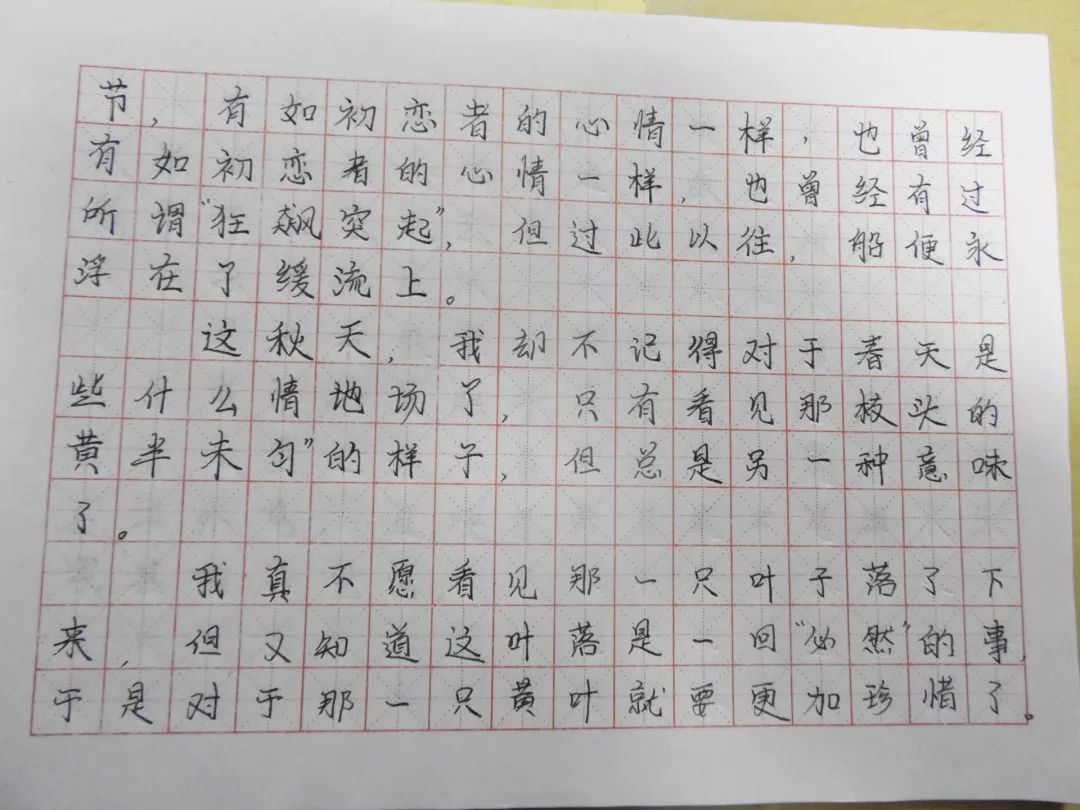 节,有如初恋者的心情一样,也曾经
有如初恋者的心情一样,也曾经有过
所谓“狂飙突起”,但过此以往,船便永
浮在了缓流上。
这秋天,我却不记得对于春天是
些什么情地场了,只有看见那枝头的
黄半未匀”的样子,但总是另一种意味
了。
我真不愿看见那一只叶子落了下
来,但又知道这叶落是一回“必然”的事,
于是对于那一只黄叶就要更加珍惜了。